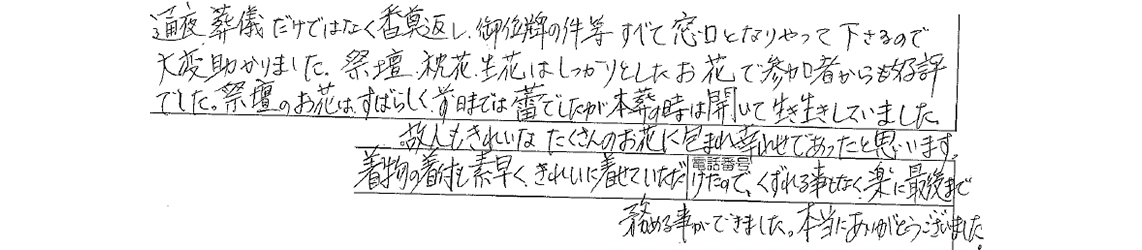 通夜葬儀だけではなく香奠返し、御位牌の件等すべて窓口となりやって下さるので
大変助かりました。祭壇、枕花、生花はしっかりとしたお花で参加者からも好評
でした。祭壇のお花は、すばらしく、前日までは蕾でしたが本葬の時は開いて生き生きしていました。
故人もきれいな たくさんのお花に包まれ幸せであったと思います。
電話番号
着物の着付も素早く、きれいに着せていただけたので、くずれる事もなく、楽に最後まで
務める事ができました。本当にありがとうございました。